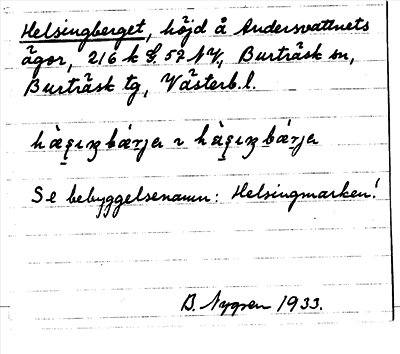 Helsingberget, höjd å Andersvattnets
ägor, 216 k S. 59 NV, Burträsk sn,
Burträsk tg, Västerb.l.
Se bebyggelsenamn: Helsingmarken!
B. Nygren 1933.